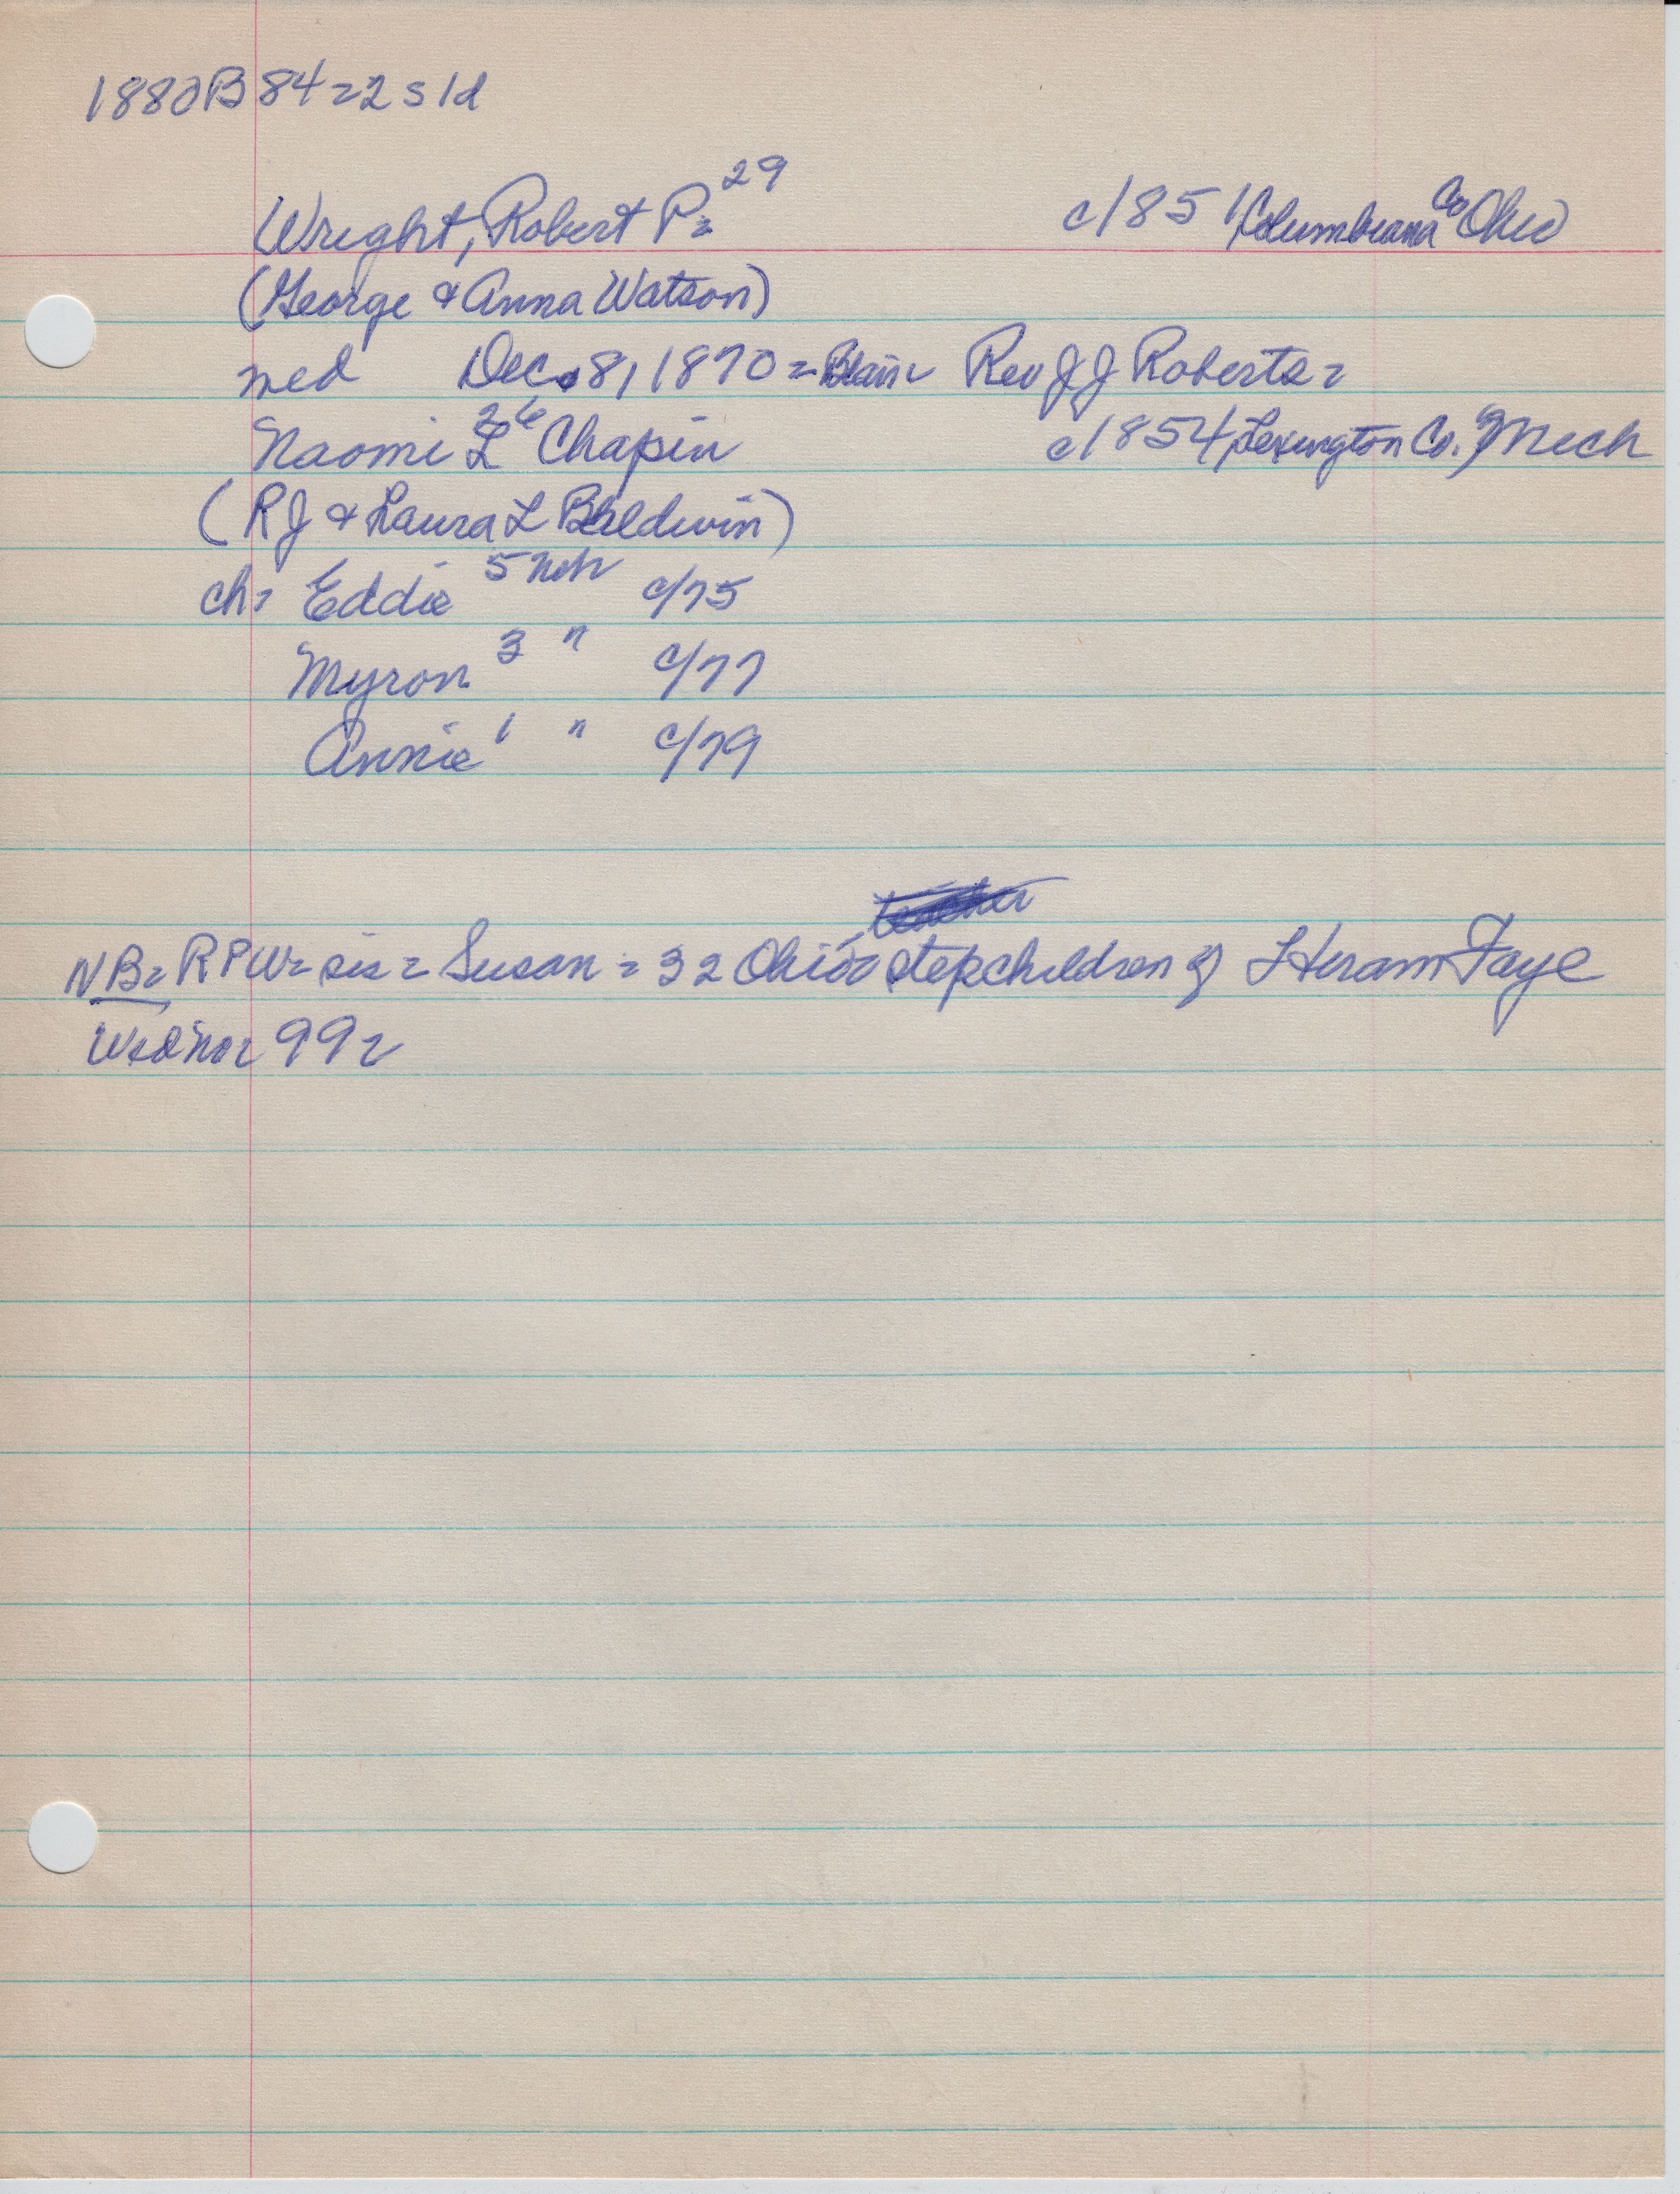 1880B 84=2s 1d
Wright, Robert P= 29 c/1851 Columbiana Co Ohio
(George & Anna Watson)
med Dec. 8, 1870= Blair= Rev J J Roberts=
Naomi L 26 Chapin c/1854 Lexington Co. ? Mich
(R J & Laura L Baldwin)
ch= Eddie 5 Neb c/75
Myron 3 " c/77
Annie 1 " c/79
NB= RPW= sis= Susan= 32 Ohio= stepchildren of Hiram Faye
99=